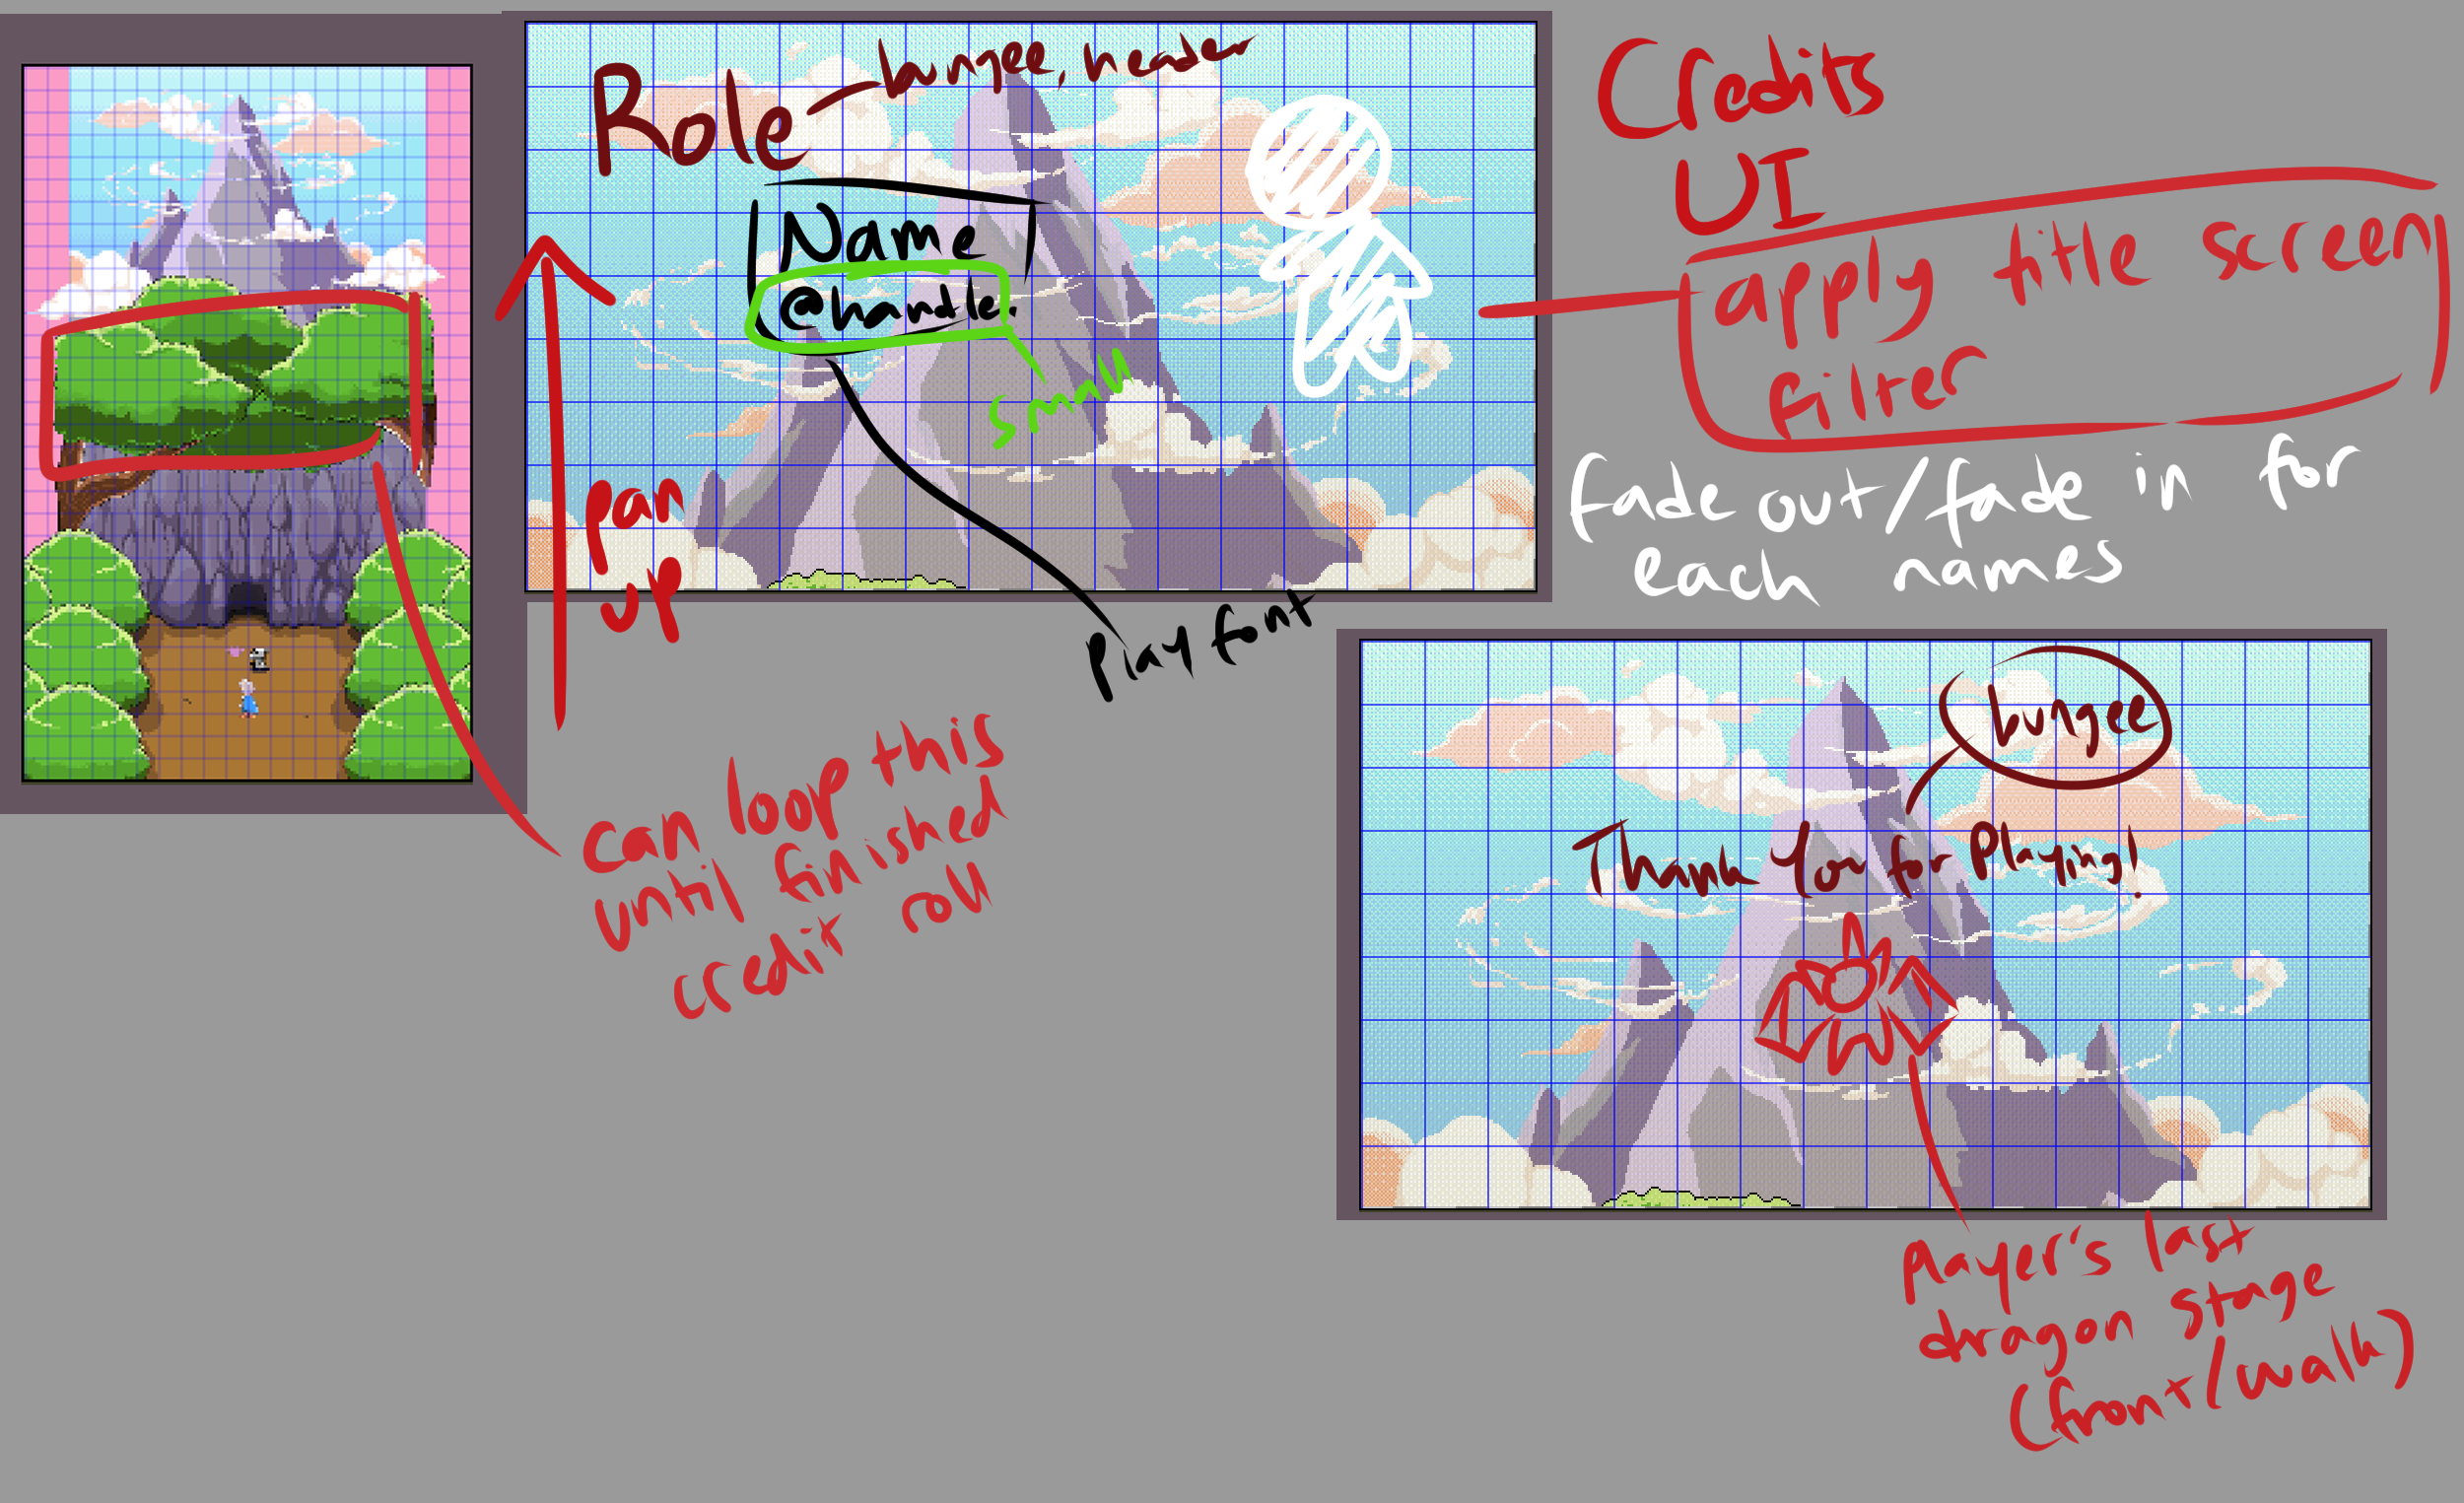 Role - bungee, header
Name
@handle
small
Play font
Pan
up
Can loop this
until finished
credit roll
Credits
UI
apply title screen
filter
fade out/fade in for
each names
bungee
Thank You for Playing!
player's last
dragon stage
(front/walk)